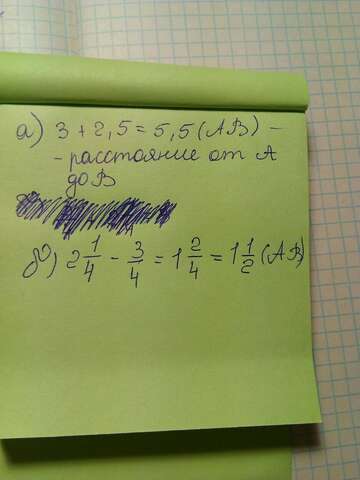 а) 3 + 2,5 = 5,5 (АВ) -
- расстояние от А
до В
б) 2 1/4 - 3/4 = 1 2/4 = 1 1/2 (АВ)